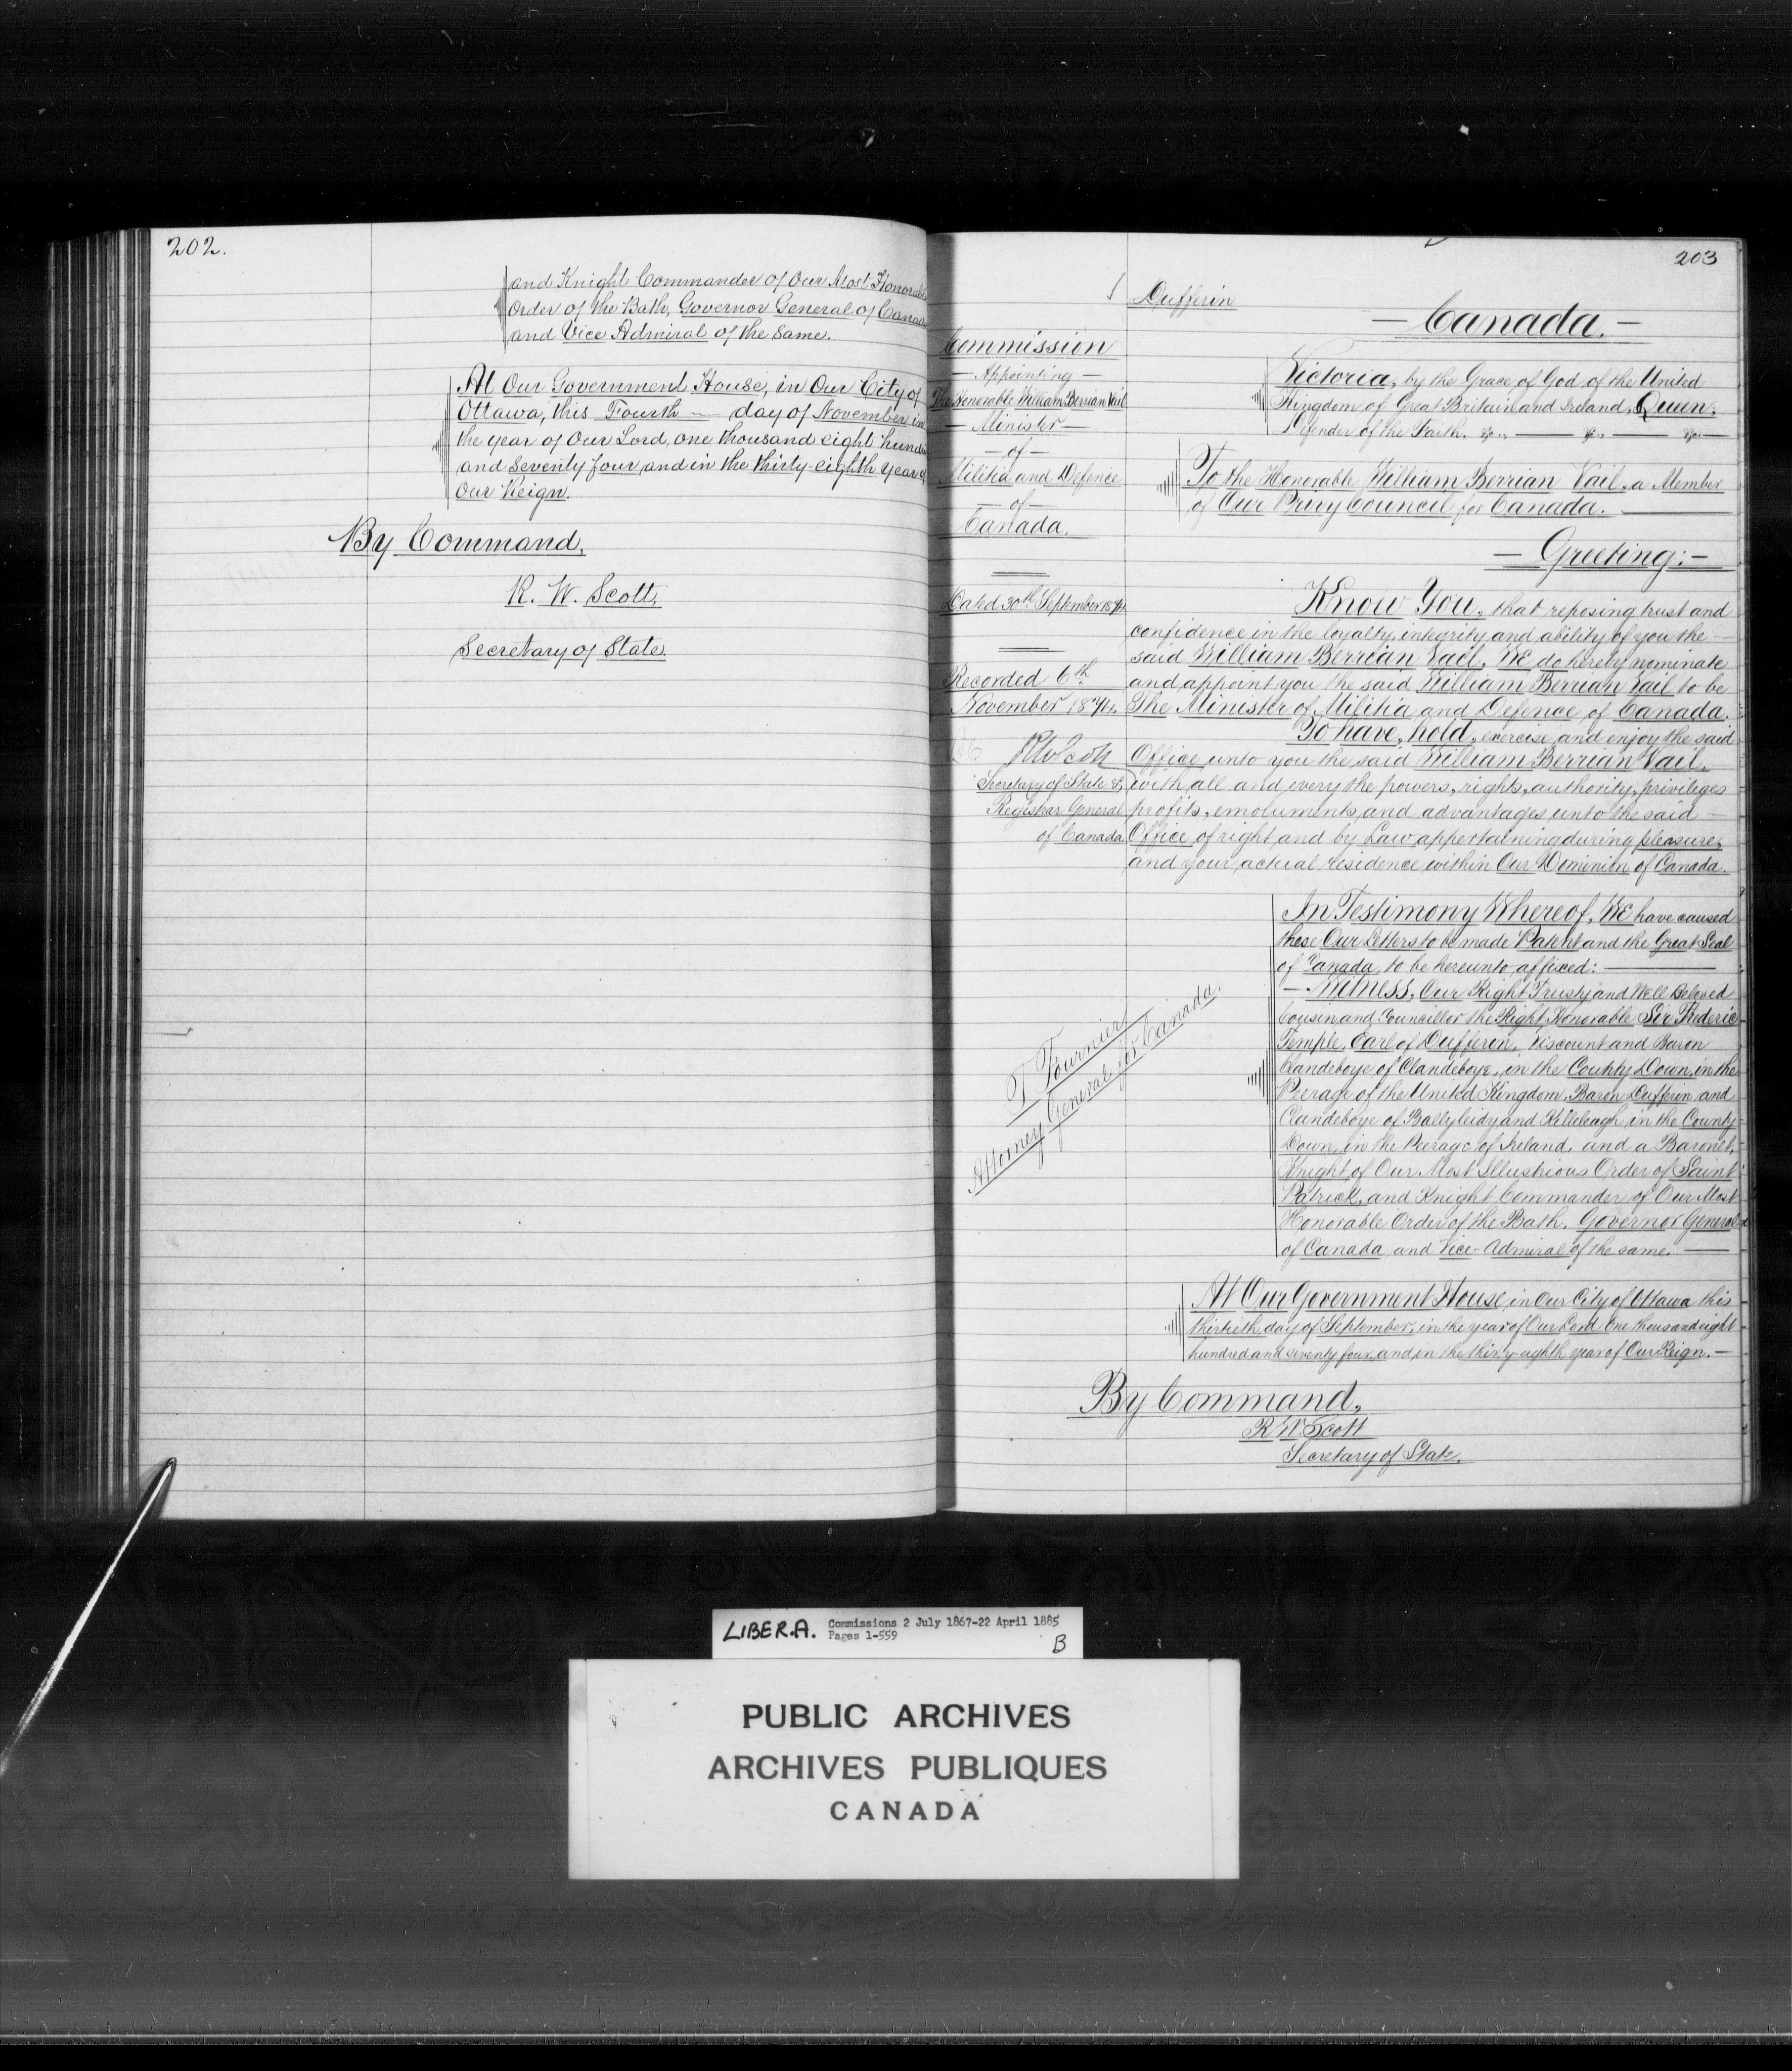 202.
and Knight Commander of Our Most Honorable
Order of the Bath, Governor General of Canada
and Vice Admiral of the Same.
At Our Government House, in Our City of
Ottawa, this Fourth — day of November in
the year of Our Lord, one thousand eight hundred
and Seventy four and in the thirty-eighth year of
Our Reign.
By Command,
R. W. Scott,
Secretary of State.
203
Dufferin
— Canada. —
Commission
— Appointing —
The Honorable William Berrian Vail
— Minister —
— of —
Militia and Defence
— of —
Canada.
Dated 30th September 1874
Recorded 6th
November 1874.
RWScott
Secretary of State &
Registrar General
of Canada
T Fournier
Attorney General for Canada.
Victoria, by the Grace of God, of the United
Kingdom of Great Britain and Ireland, Queen,
Defender of the Faith, &c., — &c., — &c. —
To the Honorable William Berrian Vail, a Member
of Our Privy Council for Canada. —
— Greeting: —
Know You, that reposing trust and
confidence in the loyalty, integrity and ability of you the —
said William Berrian Vail, We do hereby nominate
and appoint you the said William Berrian Vail to be
The Minister of Militia and Defence of Canada.
To have, hold, exercise and enjoy the said
Office unto you the said William Berrian Vail,
with all and every the powers, rights, authority, privileges
profits, emoluments and advantages unto the said —
Office of right and by Law appertaining during pleasure,
and your actual residence within Our Dominion of Canada.
In Testimony Whereof, We have caused
these Our Letters to be made Patent and the Great Seal
of Canada, to be hereunto affixed: —
— Witness, Our Right Trusty and Well Beloved
Cousin and Councillor the Right Honorable Sir Frederic
Temple, Earl of Dufferin, Viscount and Baron
Clandeboye of Clandeboye, in the County Down, in the
Peerage of the United Kingdom, Baron Dufferin and
Clandeboye of Ballyleidy and Killeleagh, in the County
Down, in the Peerage of Ireland, and a Baronet,
Knight of Our Most Illustrious Order of Saint
Patrick, and Knight Commander of Our Most
Honorable Order of the Bath, Governor General
of Canada, and Vice-Admiral of the same. —
At Our Government House, in Our City of Ottawa this
thirtieth day of September, in the year of Our Lord One thousand eight
hundred and seventy four, and in the thirty-eighth year of Our Reign. —
By Command,
R. W. Scott
Secretary of State.
LIBER.A.
Commissions 2 July 1867-22 April 1885
Pages 1-559
B
PUBLIC ARCHIVES
ARCHIVES PUBLIQUES
CANADA